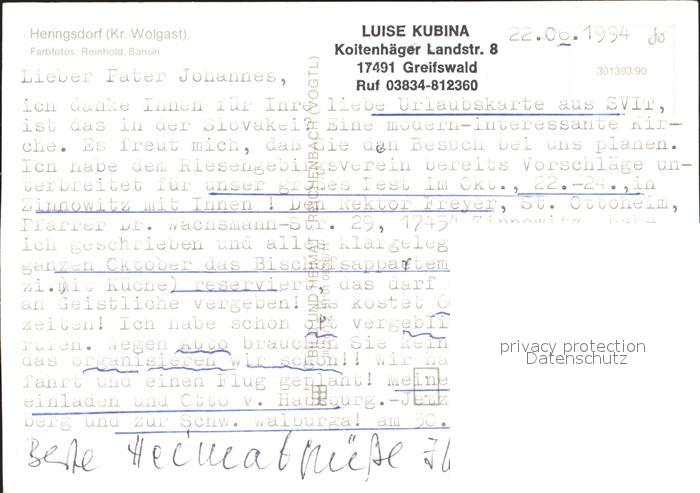 Heringsdorf (Kr. Wolgast)
Farbfotos: Reinhold, Bansin
LUISE KUBINA
Koitenhäger Landstr. 8
17491 Greifswald
Ruf 03834-812360
22.06.1994
301393/90
Lieber Pater Johannes,
ich danke Ihnen für Ihre liebe Urlaubskarte aus SVIT,
ist das in der Slovakei? Eine modern-interessante Kir-
che. Es freut mich, daß Sie den Besuch bei uns planen.
Ich habe dem Riesengebirgsverein bereits Vorschläge un-
terbreitet für unser großes Fest im Okt., 22.-24.,in
Zinnowitz mit Ihnen ! Den Rektor Freyer, St. Ottoheim,
Pfarrer Dr. Wachsmann-Str. 29, 1745 Zinnowitz, habe
ich geschrieben und alles klargeleg
ganzen Oktober das Bischofsappartem
zi.Mit Küche) reserviert, das darf
an Geistliche vergeben! Es kostet
zeiten! Ich habe schon oft vergebli
rufen. Wegen Auto brauchen Sie kein
das organisieren wir schon!! Wir ha
fahrt und einen Flug geplant! meine
einladen und Otto v. Habsburg.-Jetz
berg und zur Schw. Walburga! am 30.
Beste Heimatgrüße
BILD UND HEIMAT REICHENBACH (VOGTL)
privacy protection
Datenschutz